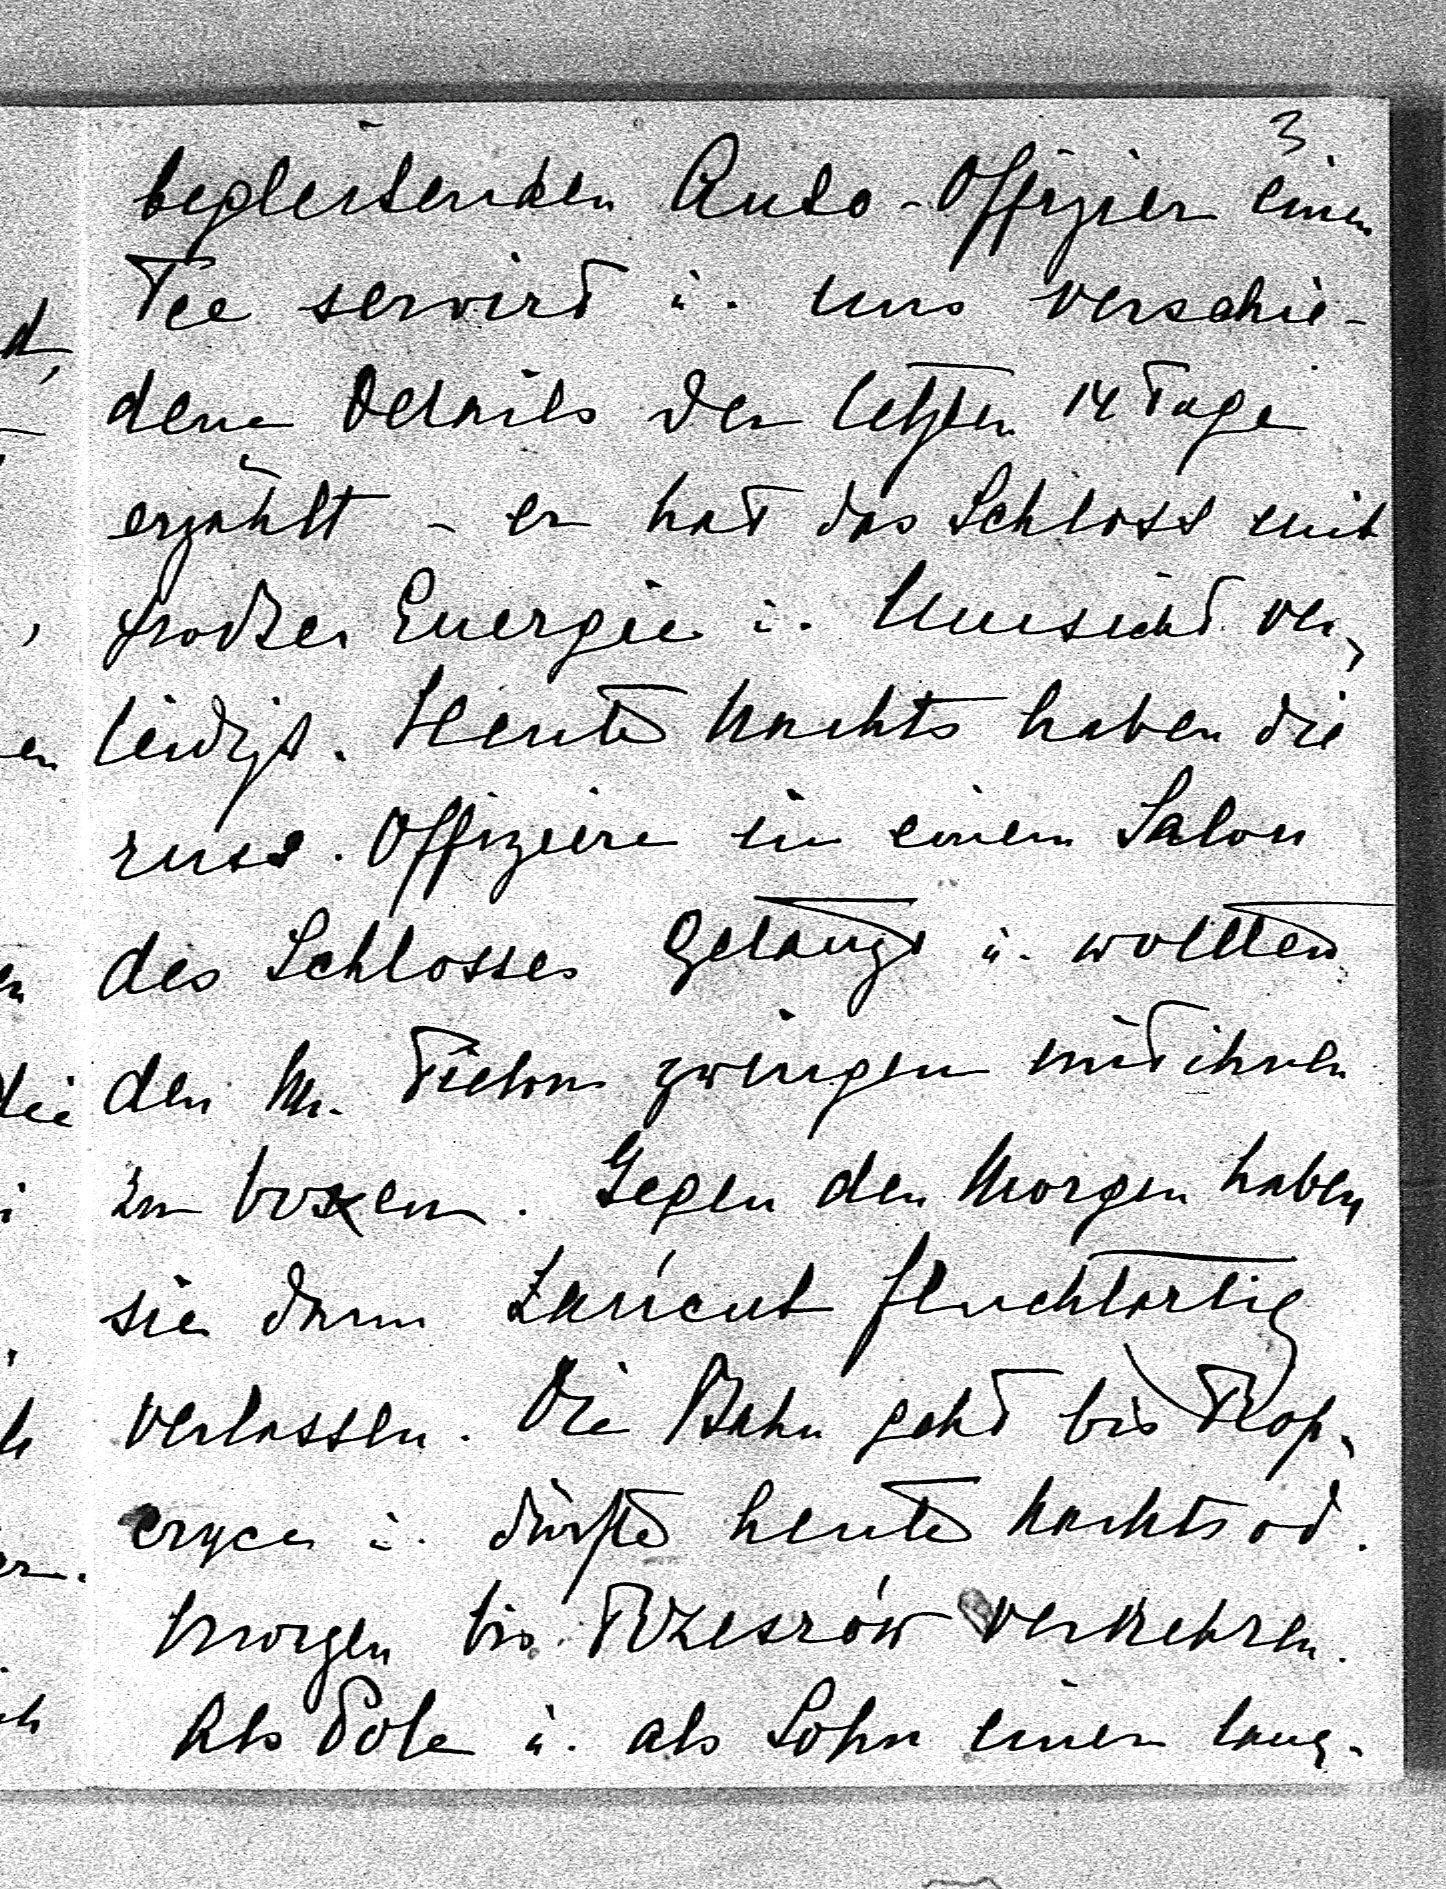 3
begleitenden Auto-Offizier einen
Tee servirt u. uns verschie-
dene Details der letzten 14 Tage
erzählt - er hat das Schloss mit
großer Energie u. Umsicht ver-
teidigt. Heute Nachts haben die
russ. Offiziere in einem Salon
des Schlosses getanzt u. wollten
den Mr. zwingen mit ihnen
zu boxen. Gegen den Morgen haben
sie dann Łańcut fluchtartig
verlassen. Die Bahn geht bis Rop-
czyce u. dürfte heute Nachts od.
Morgen bis Rzeszów verkehren.
Als Pole u. als Sohn einer lang-